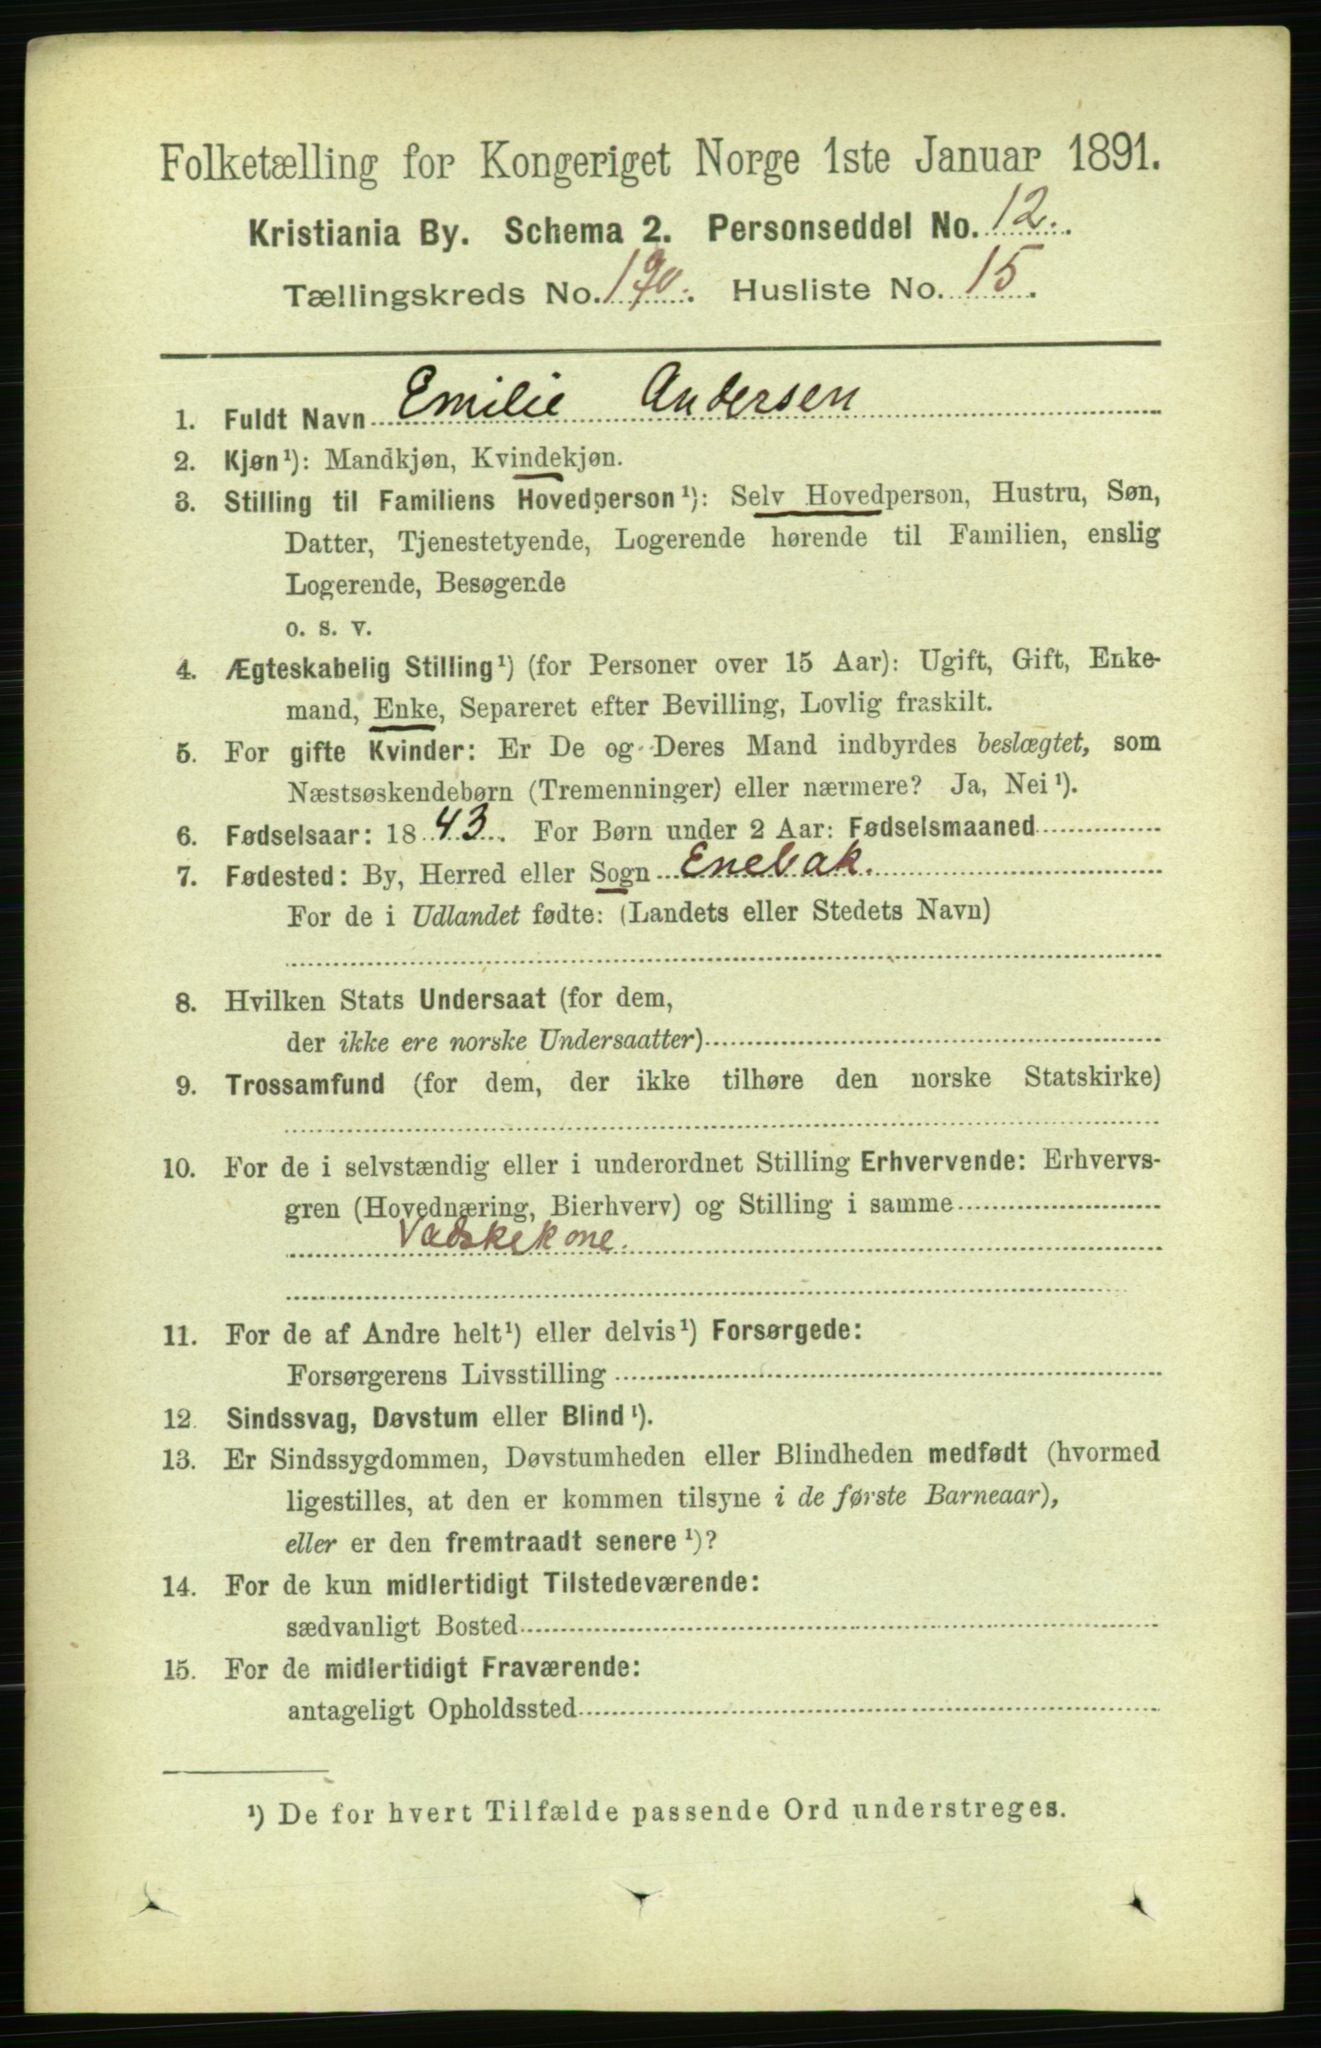 Folketælling for Kongeriget Norge 1ste Januar 1891.
Kristiania By. Schema 2. Personseddel No. 12.
Tællingskreds No. 190. Husliste No. 15.
1. Fuldt Navn Emilie Andersen
2. Kjøn¹): Mandkjøn, Kvindekjøn.
3. Stilling til Familiens Hovedperson¹): Selv Hovedperson, Hustru, Søn,
Datter, Tjenestetyende, Logerende hørende til Familien, enslig
Logerende, Besøgende
o. s. v.
4. Ægteskabelig Stilling¹) (for Personer over 15 Aar): Ugift, Gift, Enke-
mand, Enke, Separeret efter Bevilling, Lovlig fraskilt.
5. For gifte Kvinder: Er De og Deres Mand indbyrdes beslægtet, som
Næstsøskendebørn (Tremenninger) eller nærmere? Ja, Nei¹).
6. Fødselsaar: 1843. For Børn under 2 Aar: Fødselsmaaned
7. Fødested: By, Herred eller Sogn Enebak.
For de i Udlandet fødte: (Landets eller Stedets Navn)
8. Hvilken Stats Undersaat (for dem,
der ikke ere norske Undersaatter)
9. Trossamfund (for dem, der ikke tilhøre den norske Statskirke)
10. For de i selvstændig eller i underordnet Stilling Erhvervende: Erhvervs-
gren (Hovednæring, Bierhverv) og Stilling i samme
Vadskekone.
11. For de af Andre helt¹) eller delvis¹) Forsørgede:
Forsørgerens Livsstilling
12. Sindssvag, Døvstum eller Blind¹).
13. Er Sindssygdommen, Døvstumheden eller Blindheden medfødt (hvormed
ligestilles, at den er kommen tilsyne i de første Barneaar),
eller er den fremtraadt senere¹)?
14. For de kun midlertidigt Tilstedeværende:
sædvanligt Bosted
15. For de midlertidigt Fraværende:
antageligt Opholdssted
¹) De for hvert Tilfælde passende Ord understreges.